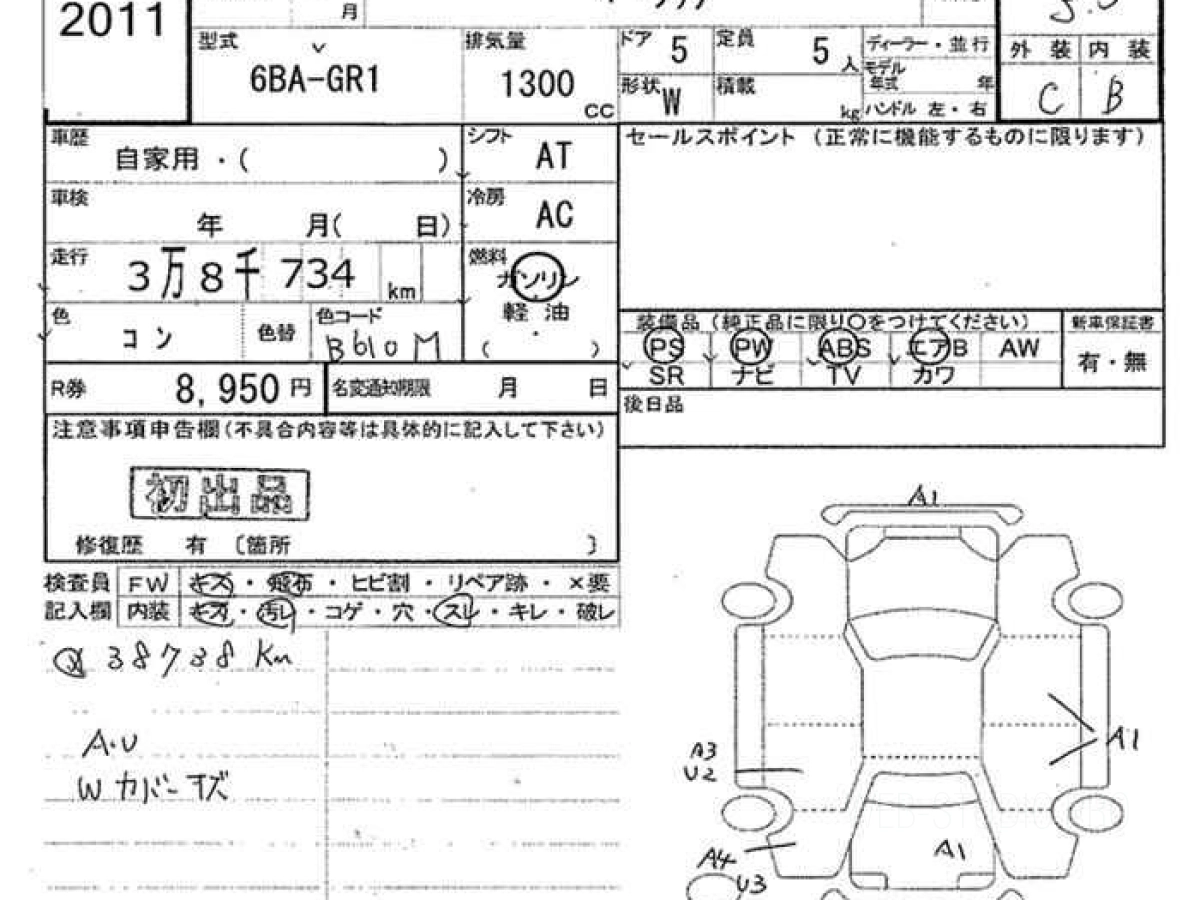 2011
月
型式
6BA-GR1
排気量
1300
CC
ドア 5
定員 5 人
ディーラー・並行
形状 W
積載 kg
モデル年式 年
ハンドル 左・右
外装 内装
C B
車歴
自家用・( )
シフト AT
セールスポイント (正常に機能するものに限ります)
車検
年 月( 日)
冷房 AC
走行
3万8千734 km
燃料
ガソリン
軽油
( ・ )
色 コン
色替
色コード
B610M
装備品 (純正品に限り〇をつけてください)
新車保証書
PS PW ABS エアB AW
有・無
SR ナビ TV カワ
R券 8,950 円
名変通知期限 月 日
後日品
注意事項申告欄(不具合内容等は具体的に記入して下さい)
初出品
修復歴 有 〔箇所 〕
検査員 FW キズ・飛石・ヒビ割・リペア跡・×要
記入欄 内装 キズ・汚レ・コゲ・穴・スレ・キレ・破レ
38738 Km
A・U
Wカバーキズ
A1
A1
A3
U2
A1
A4
U3